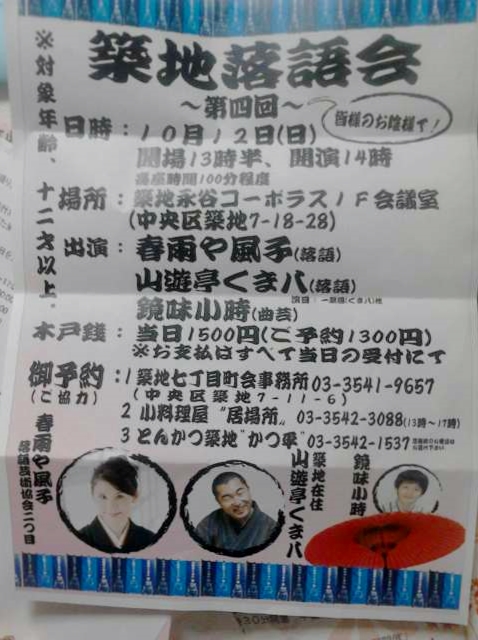 築地落語会
～第四回～
皆様のお陰様で！
※対象年齢、十二才以上。
日時：10月12日(日)
開場13時半、開演14時
高座時間100分程度
場所：築地永谷コーポラス1F会議室
(中央区築地7-18-28)
出演：春雨や風子(落語)
山遊亭くま八(落語)
鏡味小時(曲芸)
木戸銭：当日1500円(ご予約1300円)
※お支払はすべて当日の受付にて
御予約：1 築地七丁目町会事務所 03-3541-9657
(ご協力) (中央区築地7-11-6)
2 小料理屋"居場所" 03-3542-3088(13時～17時)
3 とんかつ築地"かつ平" 03-3542-1537
春雨や風子
落語芸術協会二つ目
築地在住
山遊亭くま八
鏡味小時